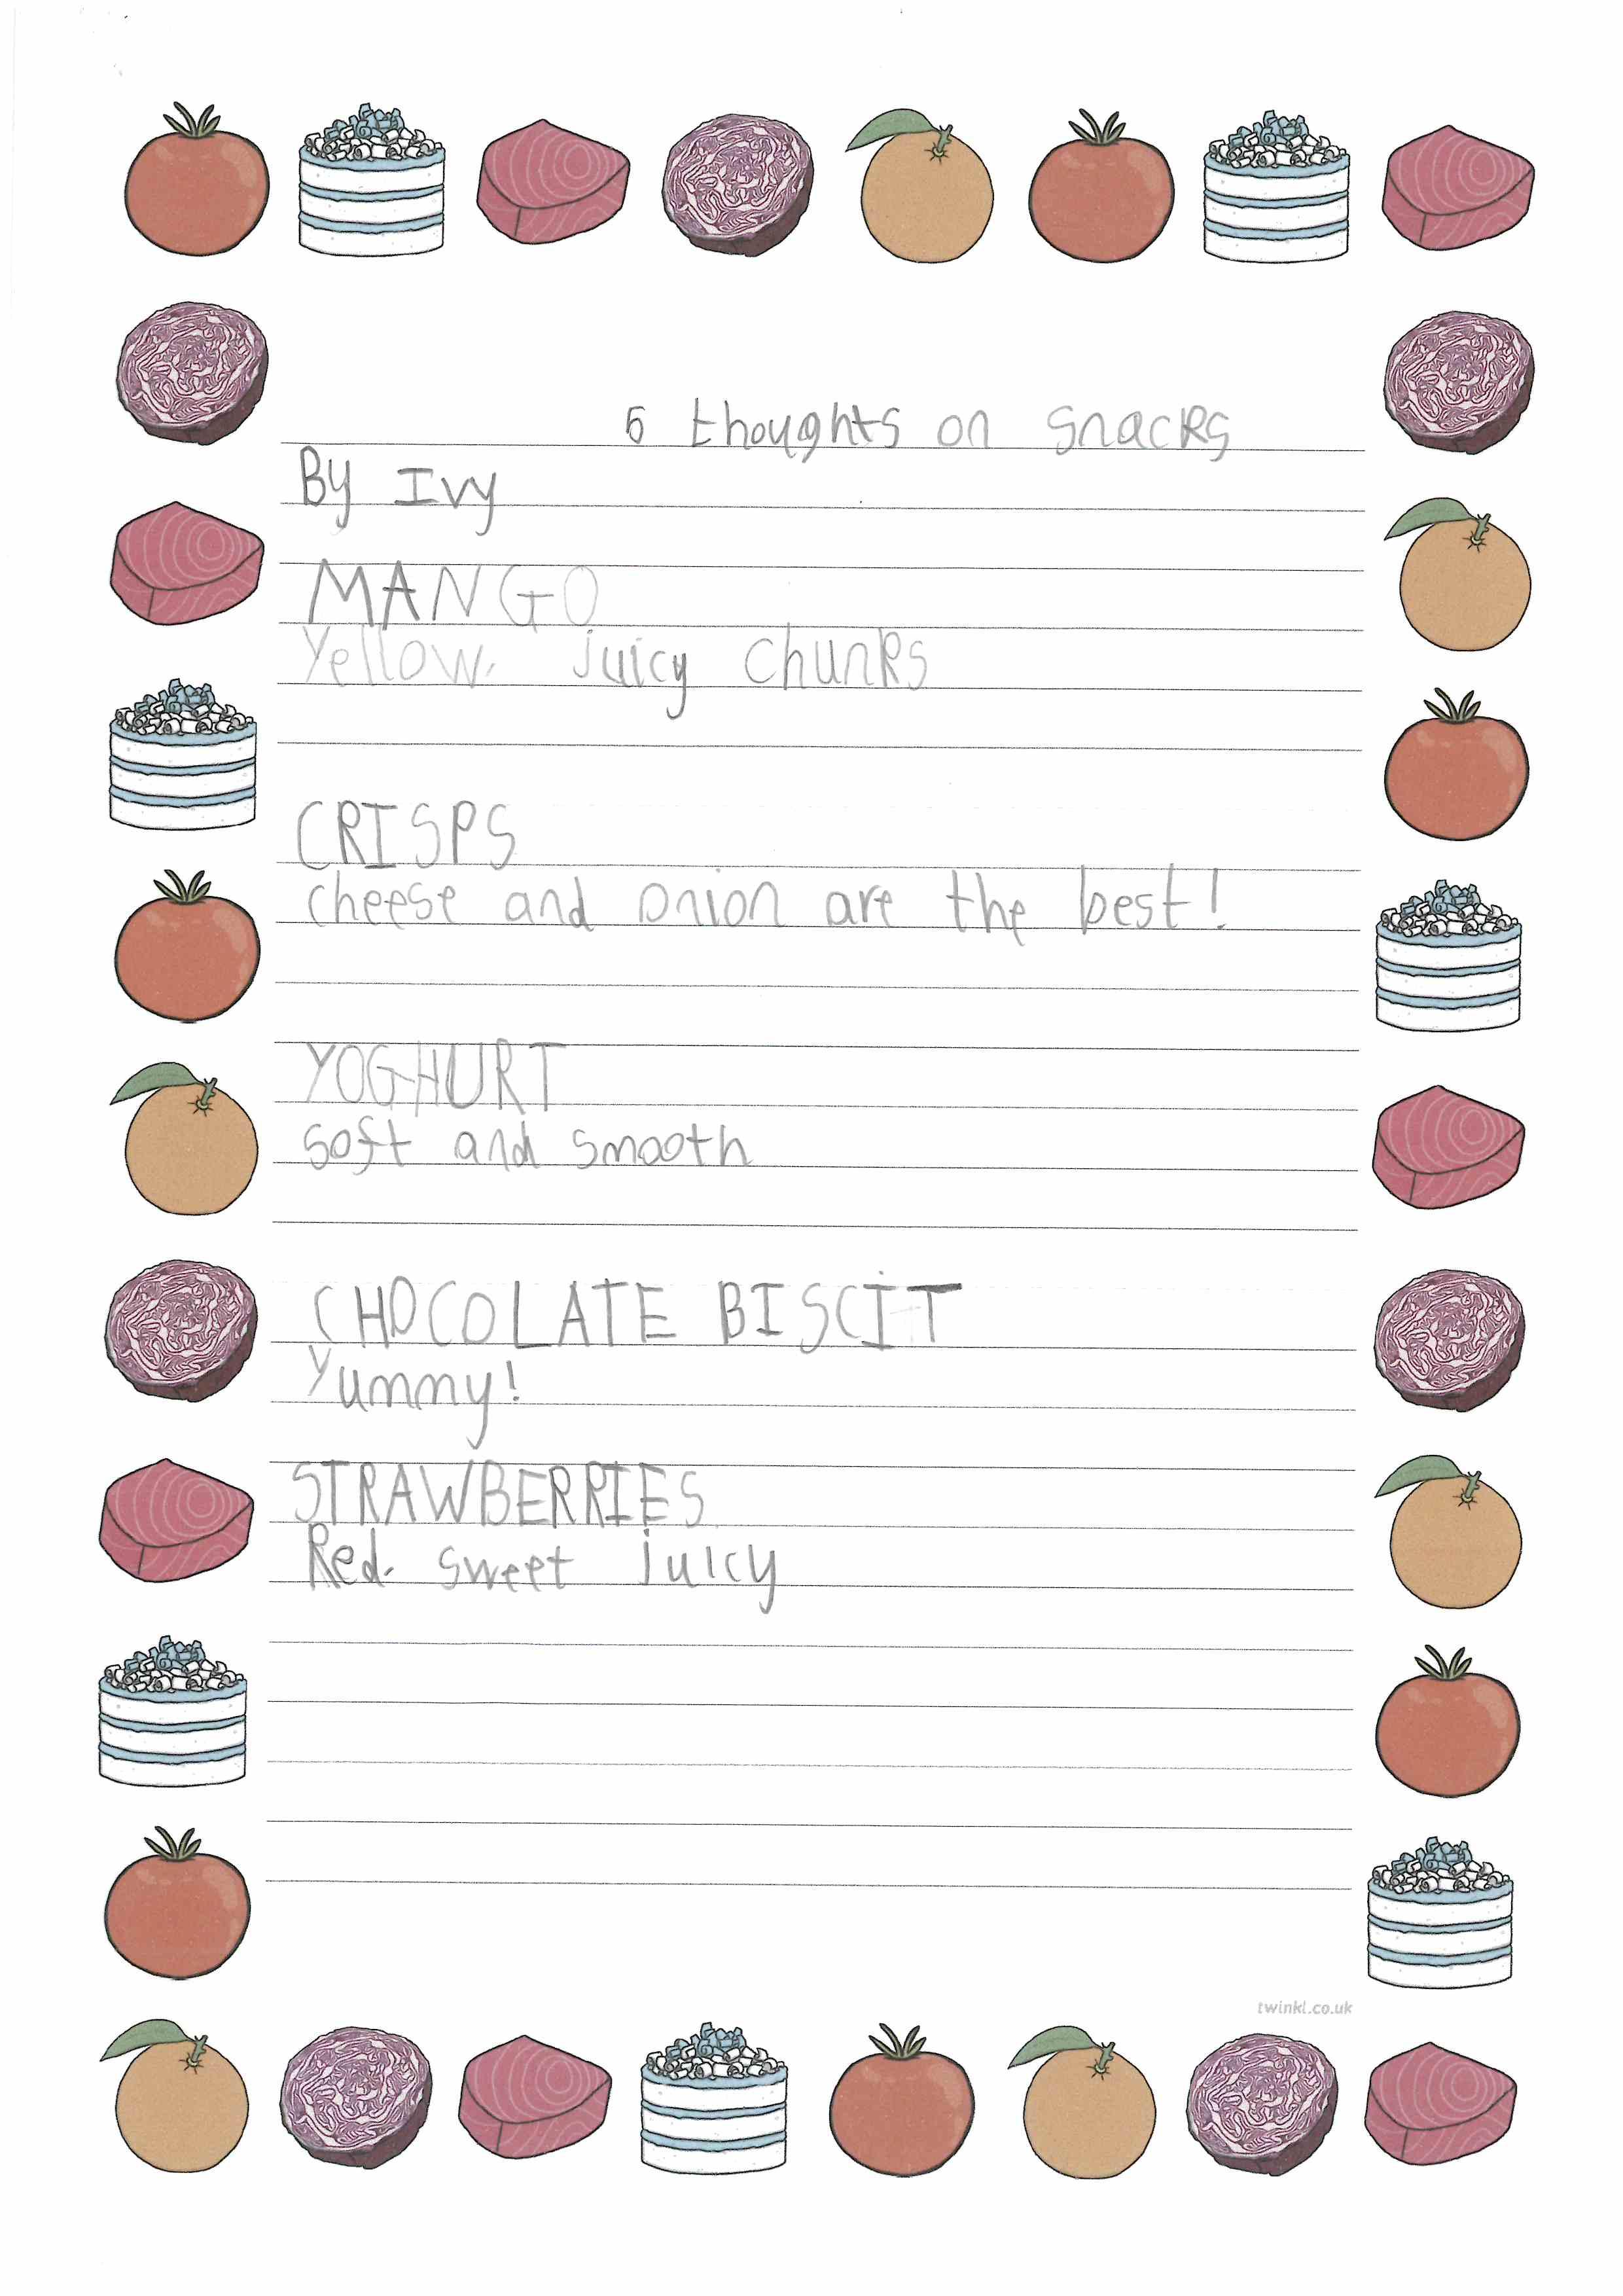 5 thoughts on snacks
By Ivy
MANGO
Yellow, juicy chunks
CRISPS
cheese and onion are the best!
YOGHURT
soft and smooth
CHOCOLATE BISCIT
Yummy!
STRAWBERRIES
Red. sweet juicy
twinkl.co.uk